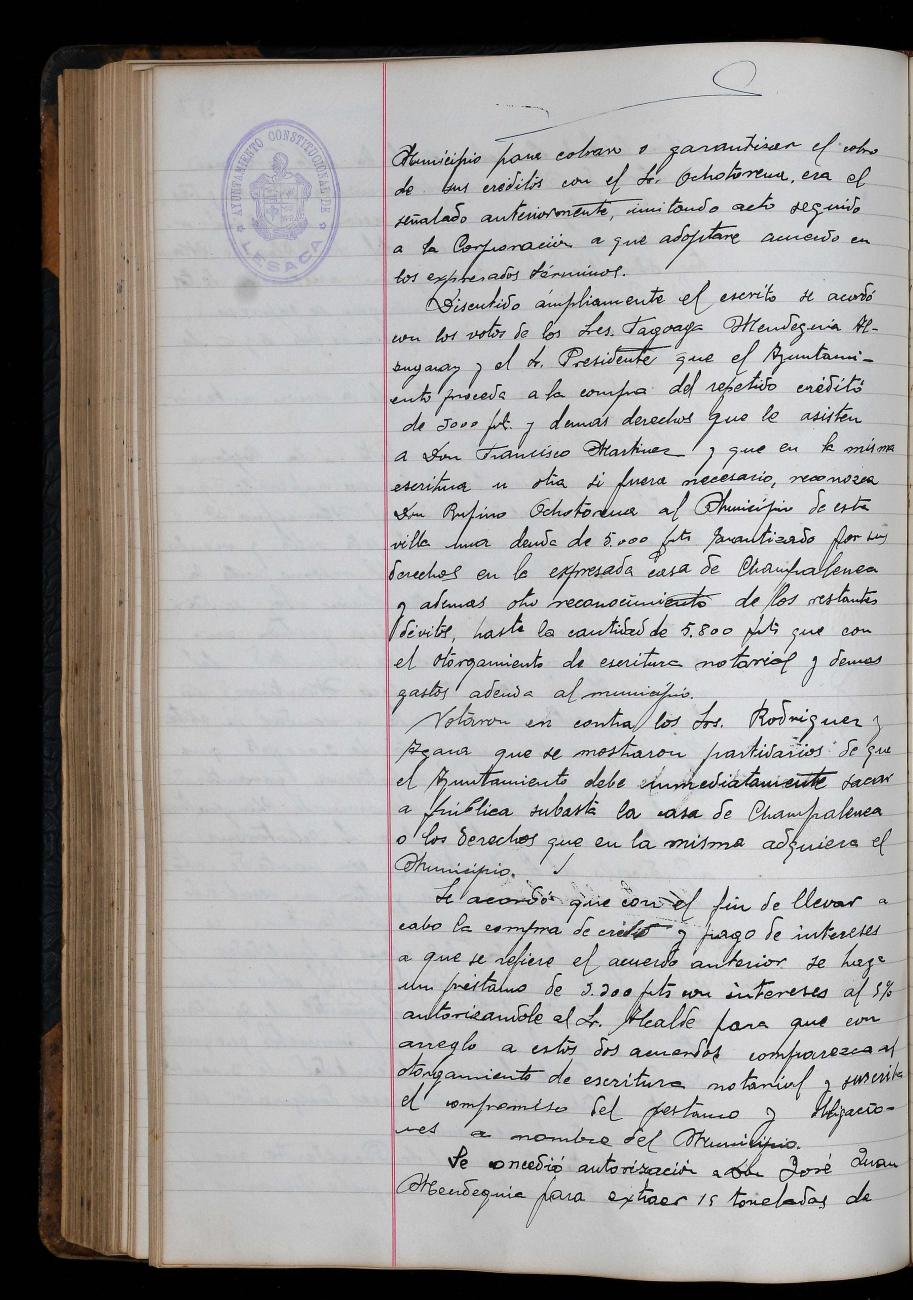 AYUNTAMIENTO CONSTITUCIONAL DE
LESACA
Municipio para cobrar o garantizar el cobro
de sus créditos con el Sr. Ochotorena, era el
señalado anteriormente, invitando acto seguido
a la Corporación a que adoptare acuerdo en
los expresados términos.
Discutido ámpliamente el escrito se acordó
con los votos de los Sres. Tagoaga Mendeguia Al-
zuguray y el Sr. Presidente que el Ayuntami-
ento proceda a la compra del repetido crédito
de 3000 pts. y demas derechos que le asisten
a Don Francisco Martinez y que en la misma
escritura u otra si fuera necesario, reconozca
Don Rufino Ochotorena al Municipio de esta
villa una deuda de 5.000 pts garantizado por sus
derechos en la expresada casa de Champalenea
y ademas otro reconocimiento de los restantes
dévitos, hasta la cantidad de 5.800 pts que con
el otorgamiento de escritura notarial y demas
gastos adeuda al municipio.
Votaron en contra los Sres. Rodriguez y
que se mostraron partidarios de que
el Ayuntamiento debe inmediatamente sacar
a pública subasta la casa de Champalenea
o los derechos que en la misma adquiera el
Municipio.
Se acordó que con el fin de llevar a
cabo la compra de crédito y pago de intereses
a que se refiere el acuerdo anterior se haga
un préstamo de 3.300 pts con intereses al 5%
autorizandole al Sr. Alcalde para que con
arreglo a estos dos acuerdos comparezca al
otorgamiento de escritura notarial y suscriba
el compromiso del prestamo y obligacio-
nes a nombre del Municipio.
Se concedió autorización a Don José Juan
Mendeguia para extraer 15 toneladas de